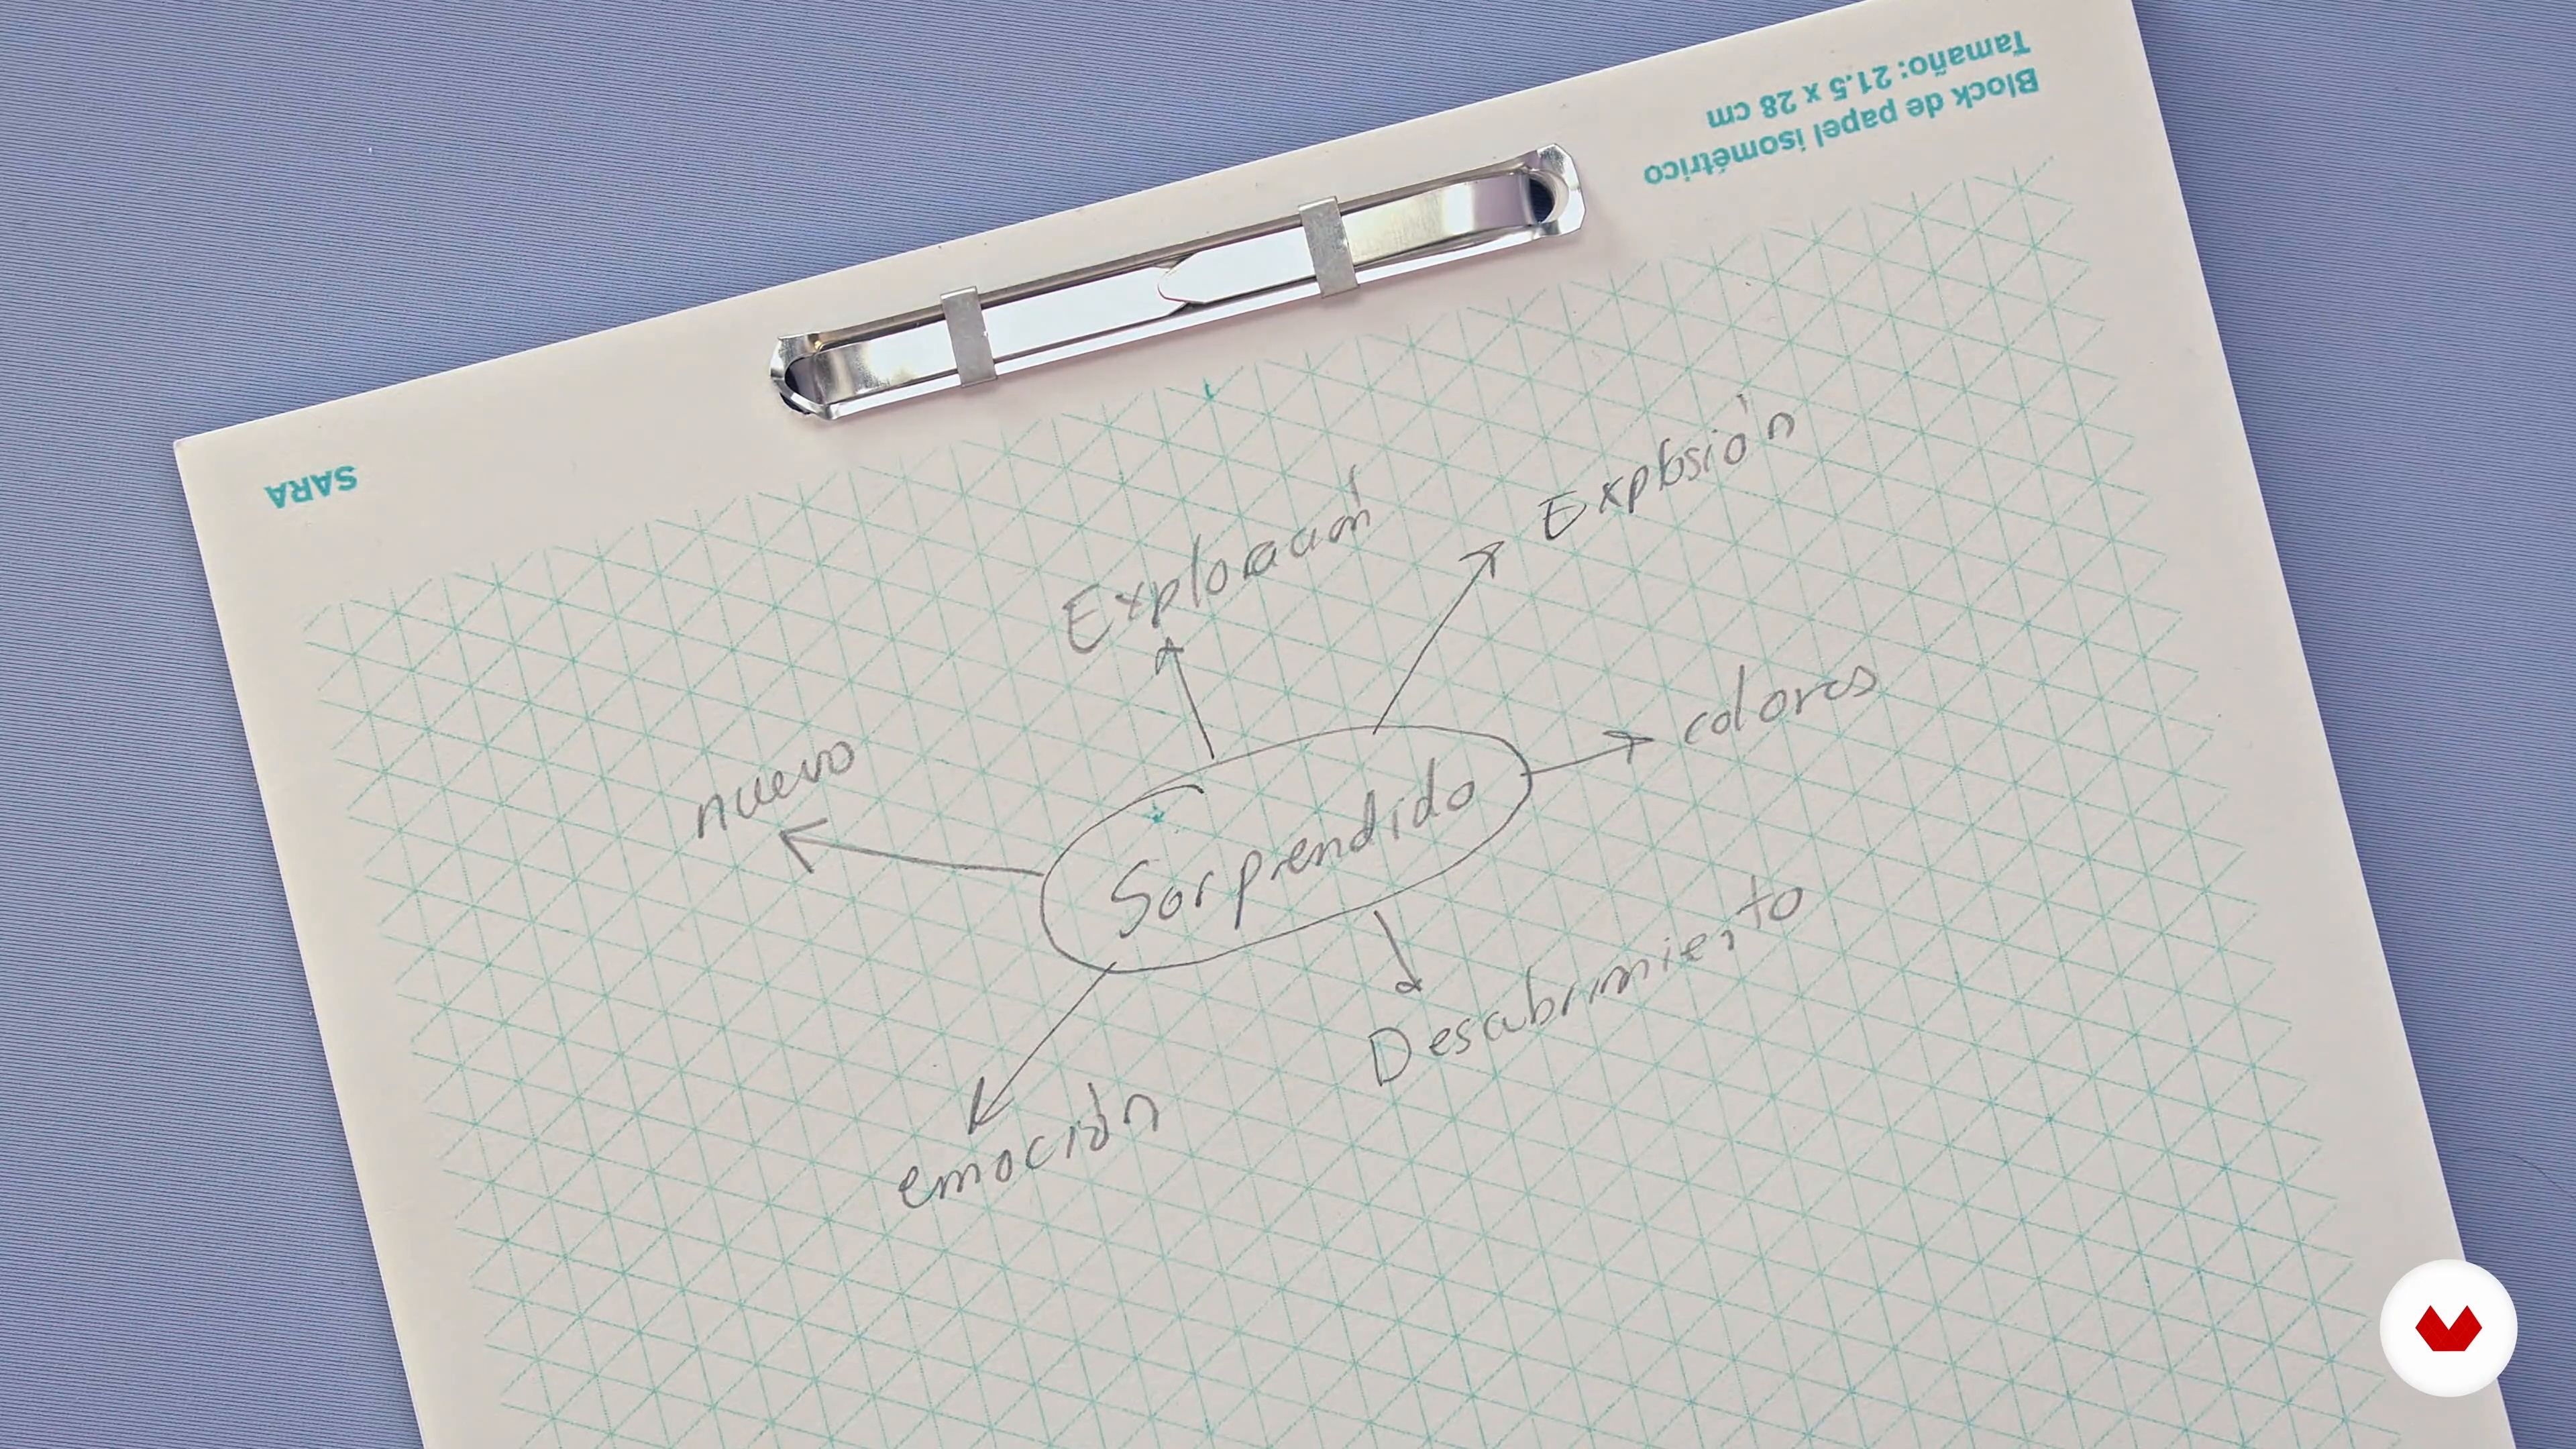 Block de papel isométrico
Tamaño: 21.5 x 28 cm
SARA
Explosión
Exploración
colores
nuevo
Sorprendido
Descubrimiento
emoción